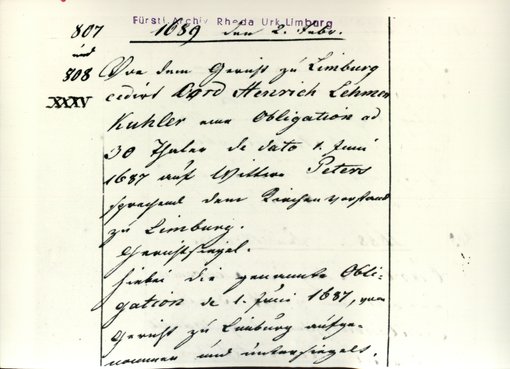 Fürstl. Archiv Rheda Urk. Limburg
807 1689 den 2. Febr.
und
808 Vor dem Gericht zu Limburg
XXXV cedirt Cord Henrich Lehmen
Kuhler eine Obligation ad
30 Thaler de dato 1. Juni
1687 auf Wittwe Peters
sprechend dem Kirchenvorstand
zu Limburg.
Gerichtsiegel.
hiebei die genannte Obli-
gation de 1. Juni 1687, vom
Gericht zu Limburg aufge-
nommen und untersiegelt.